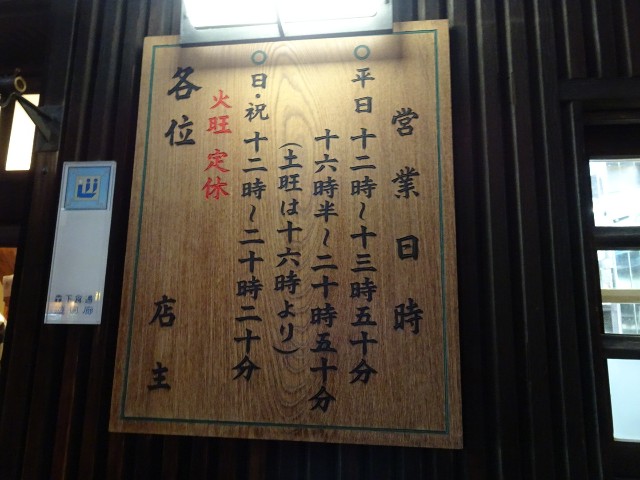 営業日時
○平日 十二時〜十三時五十分
十六時半〜二十時五十分
(土旺は十六時より)
○日・祝 十二時〜二十時二十分
火旺 定休
各位 店主